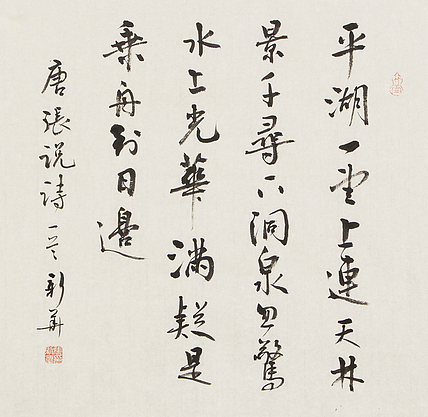 平湖一望上連天林
景千尋下洞泉忽驚
水上光華滿疑是
乘舟到日邊
唐張說詩一首新華